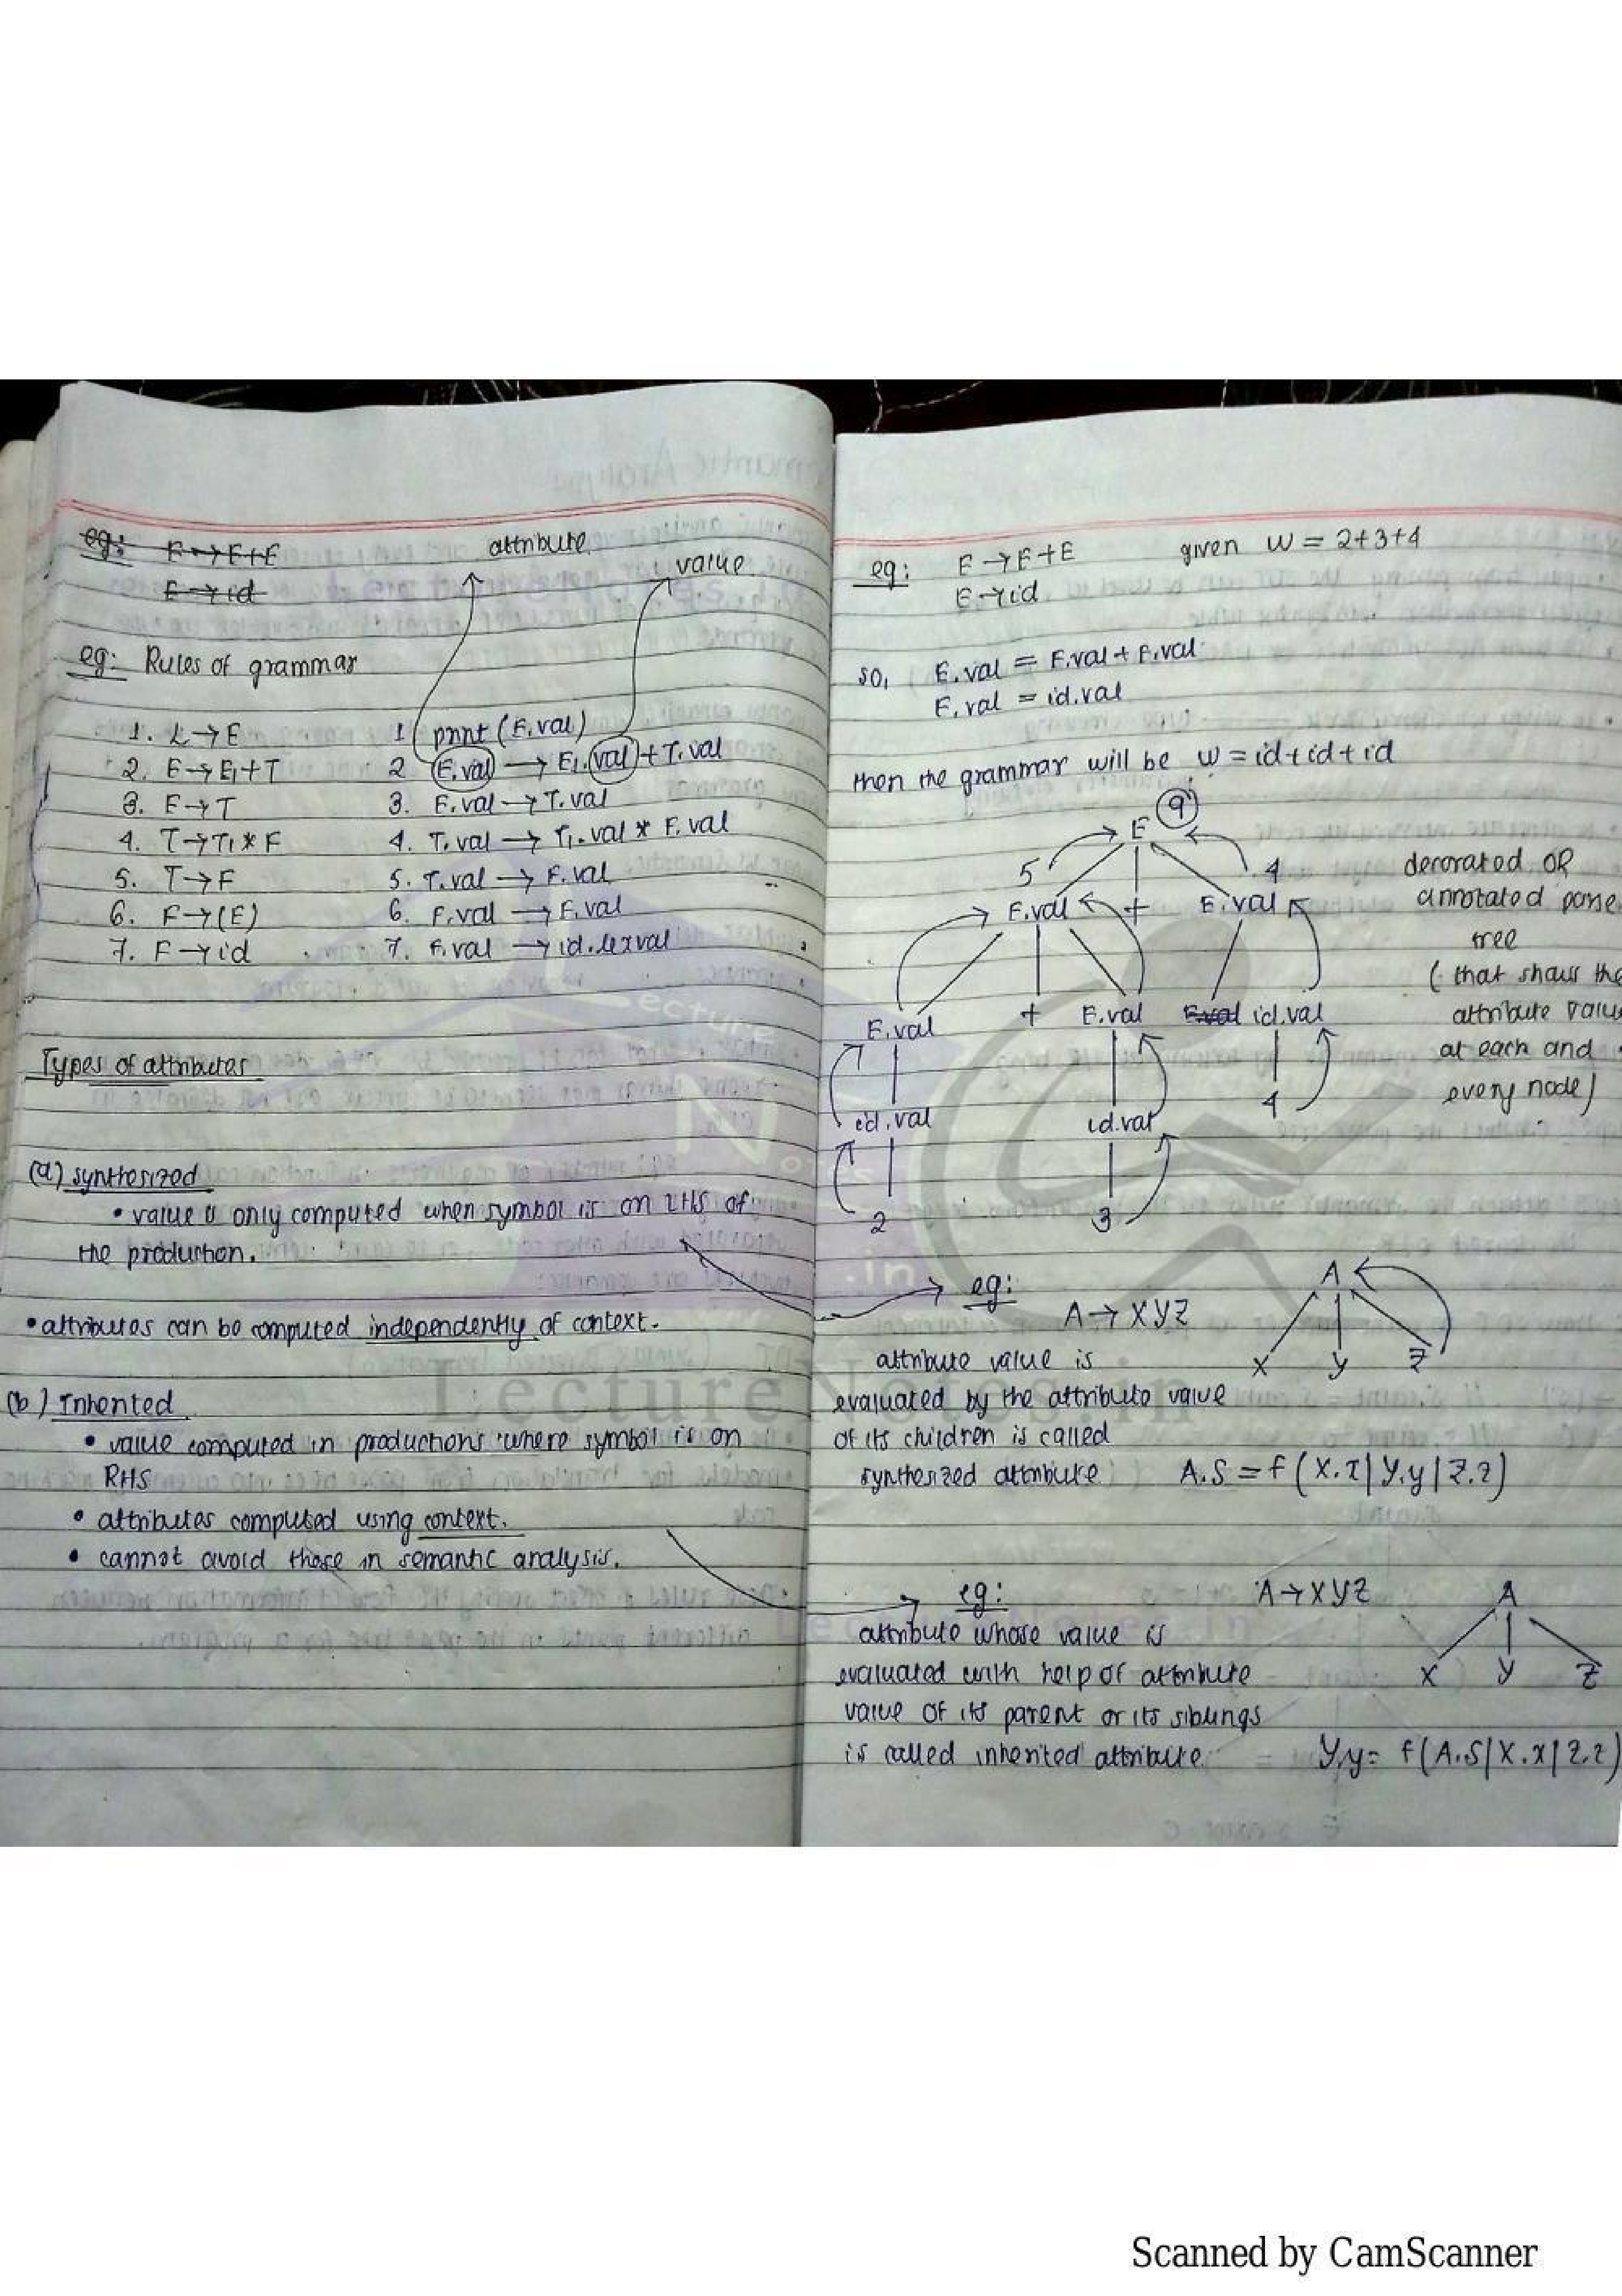 eg: E → E+E
E → id
attribute
value
eg: Rules of grammar
1. L → E
2. E → E1+T
3. E → T
4. T → T1 * F
5. T → F
6. F → (E)
7. F → id
1 print (E.val)
2 E.val → E1.val + T.val
3. E.val → T.val
4. T.val → T1.val * F.val
5. T.val → F.val
6. F.val → E.val
7. F.val → id.lexval
Types of attributes
(a) synthesized
• value is only computed when symbol is on LHS of
the production.
• attributes can be computed independently of context.
(b) Inherited
• value computed in productions where symbol is on
RHS
• attributes computed using context.
• cannot avoid these in semantic analysis.
eg: E → E+E given w = 2+3+4
E → id
so, E.val = E.val + E.val
E.val = id.val
then the grammar will be w = id+id+id
E 9
5 4
E.val + E.val
E.val + E.val id.val
id.val id.val 4
2 3
decorated OR
annotated parse
tree
(that shows the
attribute value
at each and
every node)
eg:
A → XYZ
A
X Y Z
attribute value is
evaluated by the attribute value
of its children is called
synthesized attribute A.S = f(X.x|Y.y|Z.z)
eg: A → XYZ
A
X Y Z
attribute whose value is
evaluated with help of attribute
value of its parent or its siblings
is called inherited attribute. Y.y = f(A.S|X.x|Z.z)
LectureNotes.in
Scanned by CamScanner